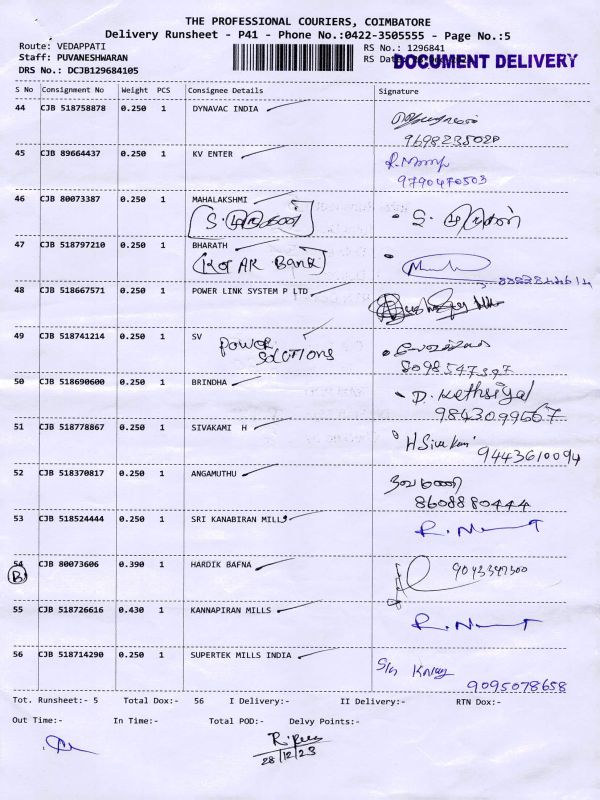 THE PROFESSIONAL COURIERS, COIMBATORE
Delivery Runsheet - P41 - Phone No.:0422-3505555 - Page No.:5
Route: VEDAPPATI
Staff: PUVANESHWARAN
DRS No.: DCJB129684105
RS No.: 1296841
RS Dat
DOCUMENT DELIVERY
S No Consignment No Weight PCS Consignee Details Signature
44 CJB 518758878 0.250 1 DYNAVAC INDIA
9698235020
45 CJB 89664437 0.250 1 KV ENTER
9790470503
46 CJB 80073387 0.250 1 MAHALAKSHMI
47 CJB 518797210 0.250 1 BHARATH
KOTAK Bank
48 CJB 518667571 0.250 1 POWER LINK SYSTEM P LTD
49 CJB 518741214 0.250 1 SV
Power
Solutions
8098547397
50 CJB 518690600 0.250 1 BRINDHA
D. Kethsiyal
9843099567
51 CJB 518778867 0.250 1 SIVAKAMI H
H Sivakami
9443610094
52 CJB 518370817 0.250 1 ANGAMUTHU
8608880444
53 CJB 518524444 0.250 1 SRI KANABIRAN MILLS
54 CJB 80073606 0.390 1 HARDIK BAFNA
B
9043347300
55 CJB 518726616 0.430 1 KANNAPIRAN MILLS
56 CJB 518714290 0.250 1 SUPERTEK MILLS INDIA
9095078658
Tot. Runsheet:- 5 Total Dox:- 56 I Delivery:- II Delivery:- RTN Dox:-
Out Time:- In Time:- Total POD:- Delvy Points:-
28/12/23